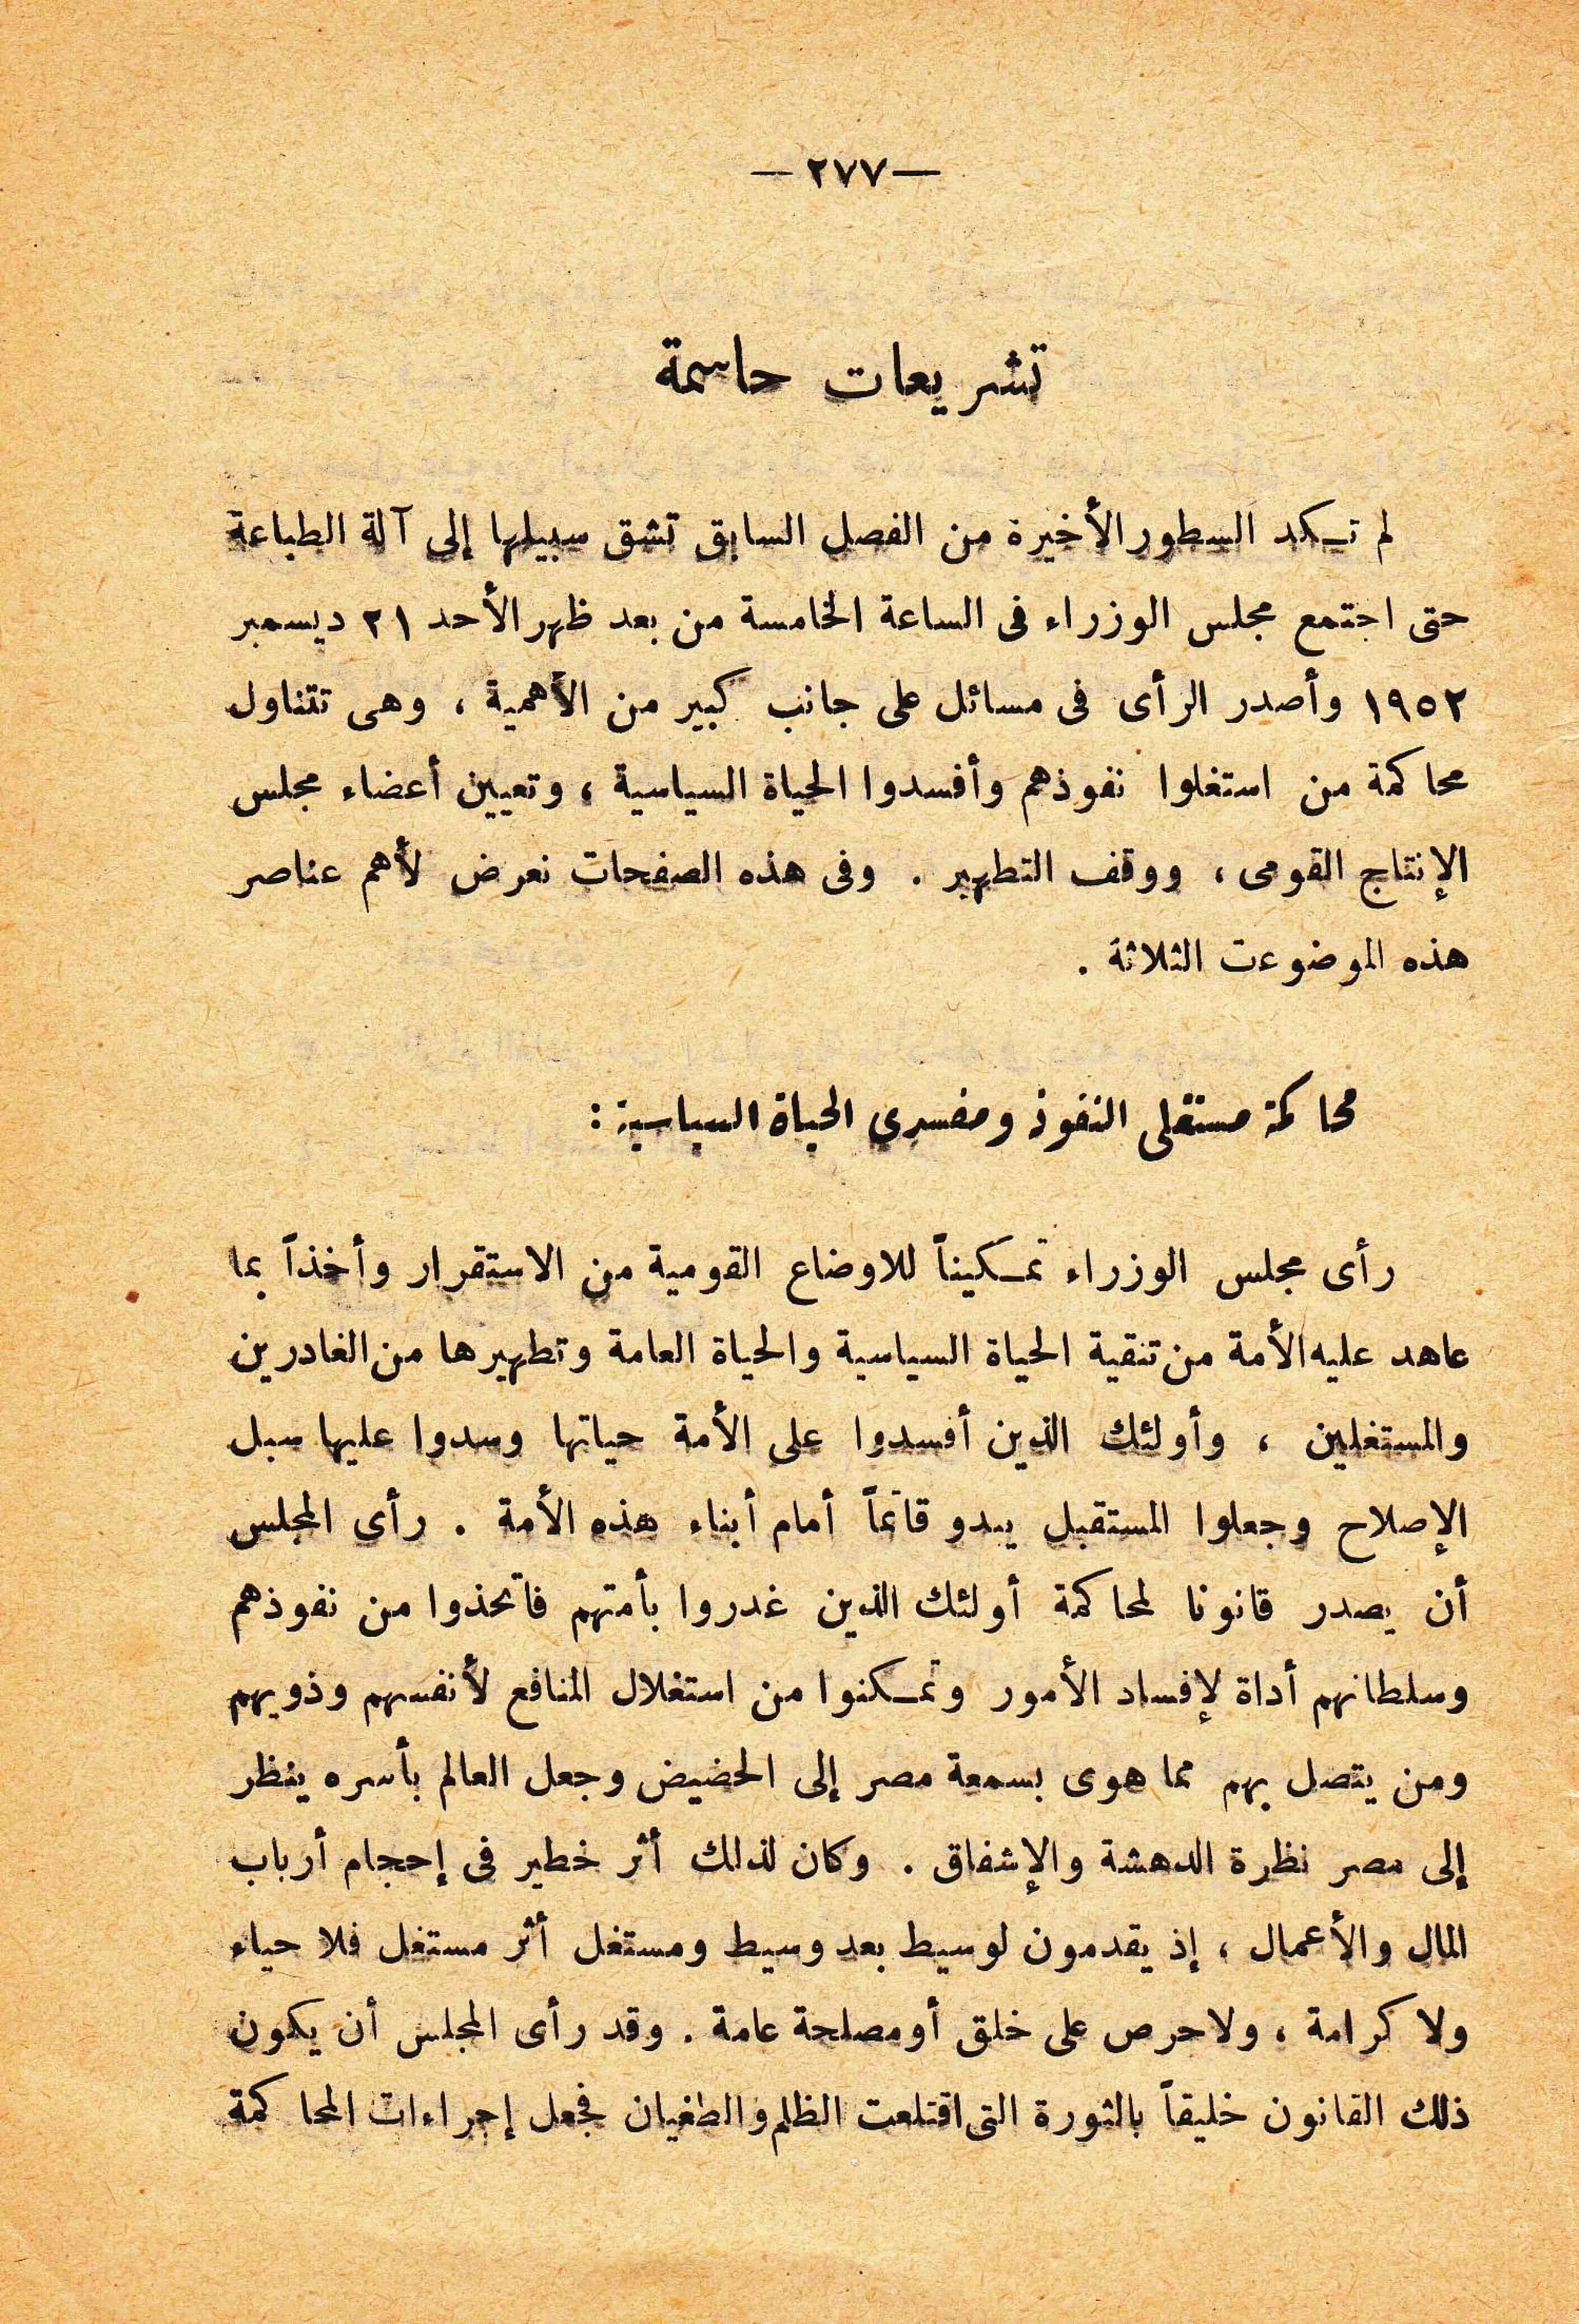 — ٢٧٧ —
تشريعات حاسمة
لم تكد السطور الأخيرة من الفصل السابق تشق سبيلها إلى آلة الطباعة
حتى اجتمع مجلس الوزراء فى الساعة الخامسة من بعد ظهر الأحد ٢١ ديسمبر
١٩٥٢ وأصدر الرأى فى مسائل على جانب كبير من الأهمية ، وهى تتناول
محاكمة من استغلوا نفوذهم وأفسدوا الحياة السياسية ، وتعيين أعضاء مجلس
الإنتاج القومى ، ووقف التطهير . وفى هذه الصفحات نعرض لأهم عناصر
هذه الموضوعت الثلاثة .
محاكمة مستغلى النفوذ ومفسدى الحياة السياسية :
رأى مجلس الوزراء تمكيناً للاوضاع القومية من الاستقرار وأخذاً بما
عاهد عليه الأمة من تنقية الحياة السياسية والحياة العامة وتطهيرها من الغادرين
والمستغلين ، وأولئك الذين أفسدوا على الأمة حياتها وسدوا عليها سبل
الإصلاح وجعلوا المستقبل يبدو قاتماً أمام أبناء هذه الأمة . رأى المجلس
أن يصدر قانونا لمحاكمة أولئك الذين غدروا بأمتهم فاتخذوا من نفوذهم
وسلطانهم أداة لإفساد الأمور وتمكنوا من استغلال المنافع لأنفسهم وذويهم
ومن يتصل بهم مما هوى بسمعة مصر إلى الحضيض وجعل العالم بأسره ينظر
إلى مصر نظرة الدهشة والإشفاق . وكان لذلك أثر خطير فى إحجام أرباب
المال والأعمال ، إذ يقدمون لوسيط بعد وسيط ومستغل أثر مستغل فلا حياء
ولا كرامة ، ولا حرص على خلق أو مصلحة عامة . وقد رأى المجلس أن يكون
ذلك القانون خليقاً بالثورة التى اقتلعت الظلم والطغيان فجعل إجراءات المحاكمة